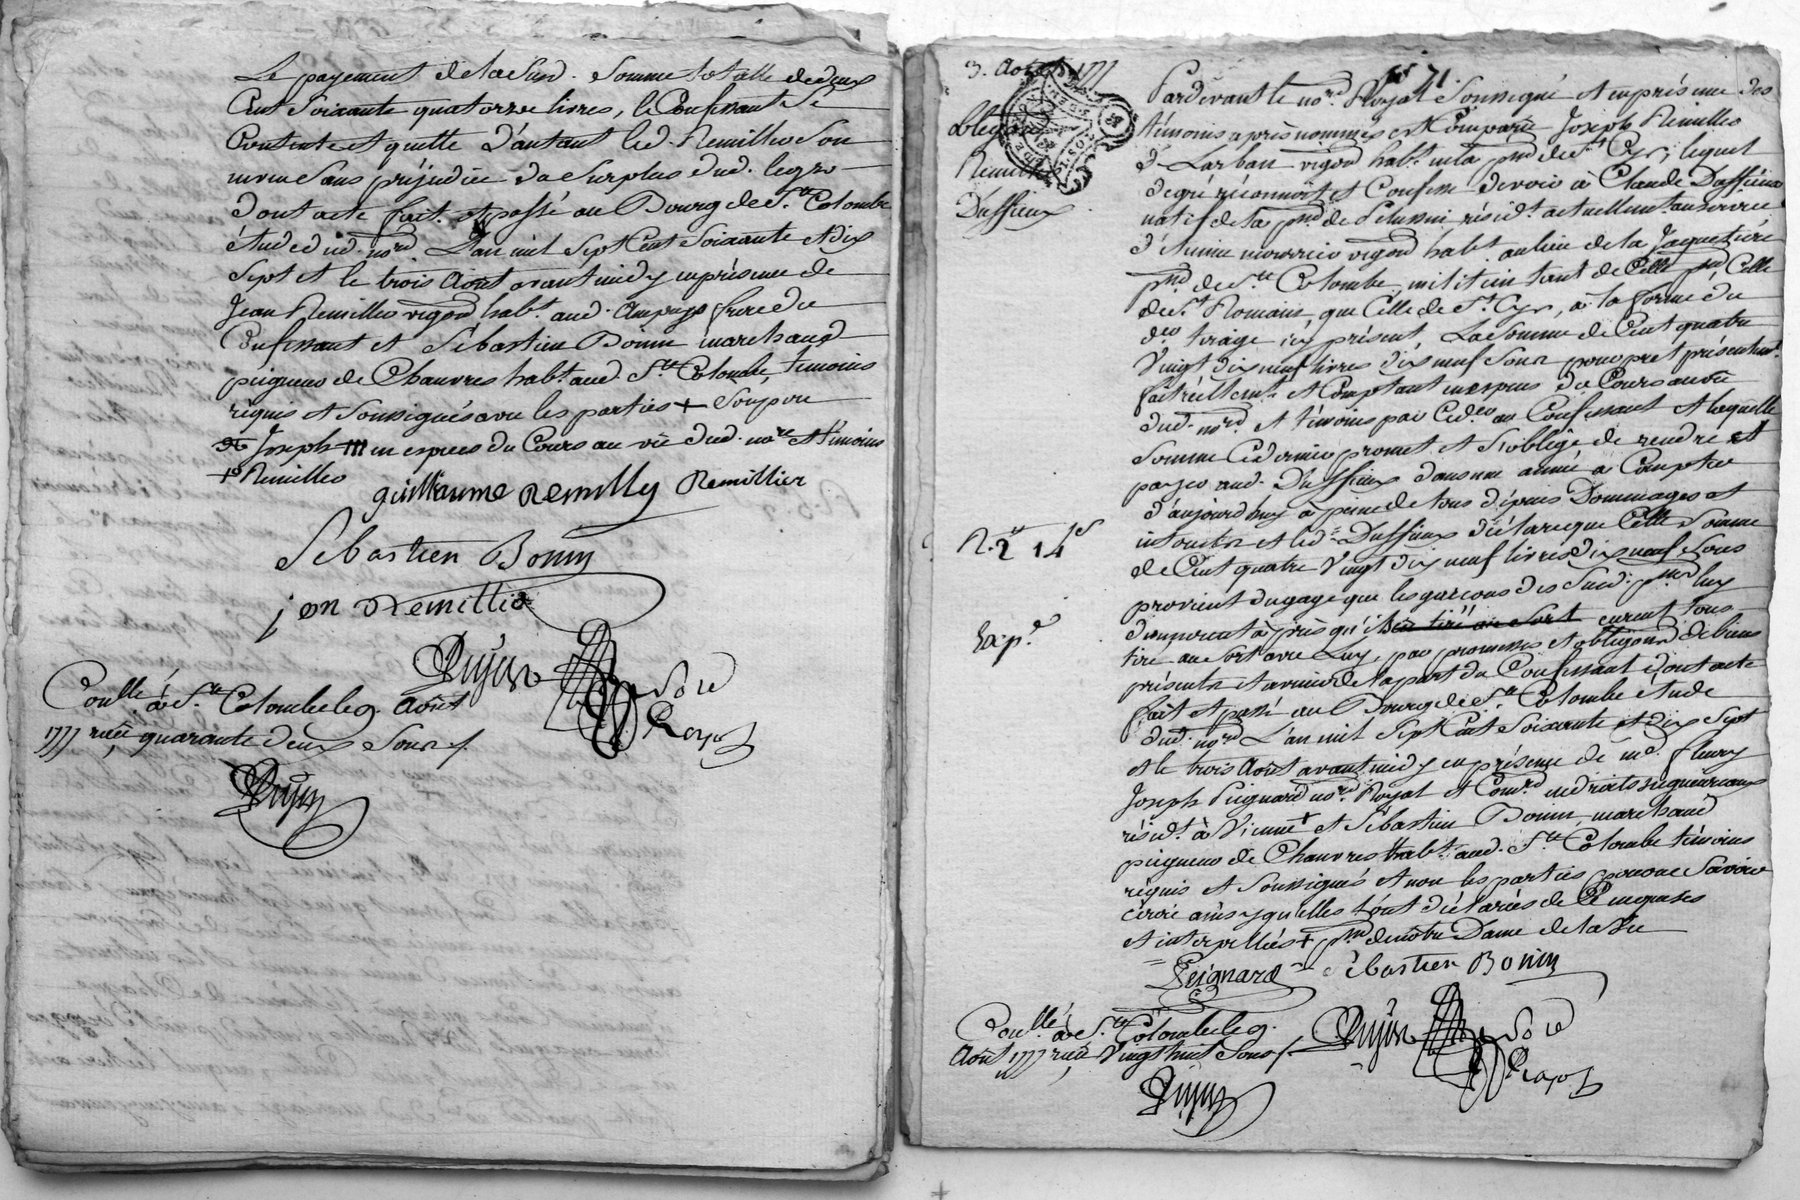 Le payement de lad. Susd. Somme totalle de deux
Cent Soixante quatorze livres, le Confessant Se
Contente et quitte d'autant led. Remilleo Son
sans préjudice du Surplus dud. legs
dont acte fait et passé au Bourg de Ste Colombe
étude dud. nore. L'an mil Sept Cent Soixante et dix
Sept et le trois Août avant midy en présence de
Jean Remilleo vigon habt. aud. Ampuys frere du
Confessant et Sébastien Bonin marchand
peigneur de Chanvres habt. aud. Ste Colombe, témoins
réquis et Soussignés avec les parties +
Joseph en especes du Cours au vû dud. nore et témoins
+ Remilleo
guillaume Remilly Remillier
Sébastien Bonin
jean Remillie
Dujon
nore
Royal
Conllé à Ste Colombe le 9 Août
1777 reçu quarante deux Sous
Dujon
3. Août 1777
Obligaon
Remilleo
Dussieux
N. 2 14s
Exp.é
n° 71.
Pardevant le nore Royal Soussigné et en présence des
témoins après nommés est Comparu Joseph Remilleo
d. Larban vigon habt. en la psse de St Cyr, lequel
de gré réconnoit et Confesse devoir à Claude Dussieux
natif de la psse de Pélussin résidt. actuellement au service
d'Etienne vigon habt. au lieu de la Jaquetiere
psse de Ste Colombe, tant de Celle psse, Celle
de St Romain, que Celle de St Cyr, à la forme du
der tirage icy présent, La Somme de Cent quatre
Vingt dix neuf livres dix neuf Sous pour pret présentement
fait réellement et Comptant en especes du Cours au vû
dud. nore et témoins par led. au Confessant et laquelle
Somme Ce dernier promet et s'oblige de rendre et
payer aud. Dussieux dans une année à Compter
d'aujourdhuy à peine de tous dépens Dommages et
interets et led. Dussieux déclare que Celle Somme
de Cent quatre Vingt dix neuf livres dix neuf Sous
provient du gage que les garçons des Susd. psses luy
donnerent après qu'il eurent tous
tiré au Sort avec Luy, par promesses et obligaon de biens
présents et avenir de la part du Confessant, dont acte
fait et passé au Bourg de Ste Colombe étude
dud. nore L'an mil Sept Cent Soixante et dix Sept
et le trois Août avant midy en présence de me. fleury
Joseph Peignard nore Royal et Comre en droits seigneuriaux
résidt. à Vienne + et Sébastien Bonin, marchand
peigneur de Chanvres habt. aud. Ste Colombe témoins
réquis et Soussignés et non les parties pour ne Savoir
écrire ainsy qu'elles l'ont déclaré de Ce enquises
et interpellées + psse de notre Dame de la Vie
Peignard Sébastien Bonin
Dujon
nore
Royal
Conllé à Ste Colombe le 9.
Août 1777 reçu Vingt huit Sous
Dujon